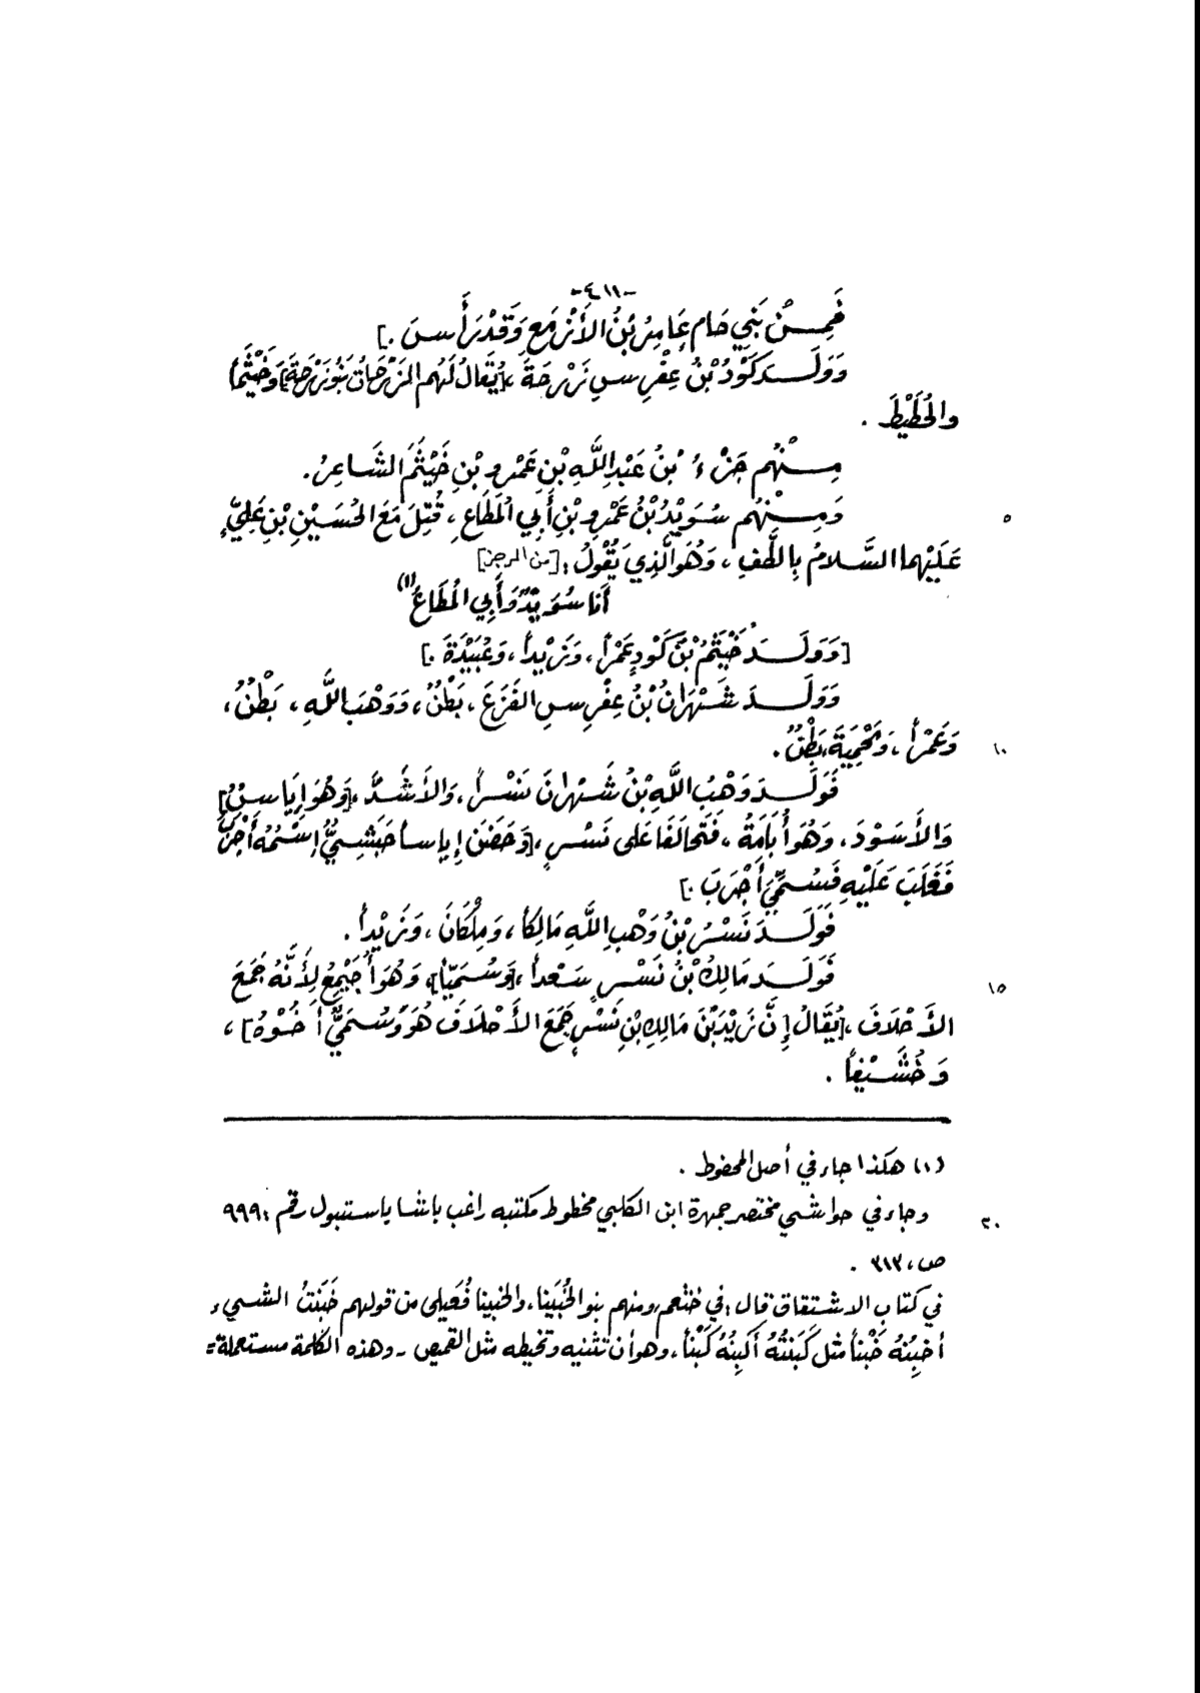 -٤١١-
فَمِنْ بَنِي حَام عَامِرُ بْنُ الأَزْمَعِ وَقَدْ رَأَسَ .]
وَوَلَدَ كَوْدُ بْنُ عِفْرِسِ زَرْحَةَ ،[يُقَالُ لَهُم الزَرْحَاتُ بَنُو زَرْحَةَ] وَخَيْثَماً
والخُطَيْطَ .
مِنْهُم جَزْءُ بْنُ عَبْدِ اللَّهِ بْنِ عَمْرِو بْنِ خَيْثَمَ الشَّاعِرُ.
٥ وَمِنْهُم سُوَيْدُ بْنُ عَمْرِو بْنِ أَبِي المُطَاعِ، قُتِلَ مَعَ الحُسَيْنِ بْنِ عَلِيٍّ
عَلَيْهِما السَّلامُ بِالطَّفِ ، وَهُوَ الَّذِي يَقُوْلُ: [من الرجز]
أَنا سُوَيْدٌ وَأَبِي المُطَاعُ (١)
[وَوَلَدَ خَيْثَمُ بْنُ كَوْدٍ عَمْراً، وَزَيْداً، وَعُبَيْدَةَ .]
وَوَلَدَ شَهْرَانُ بْنُ عِفْرِسِ الفَزَعَ ، بَطْنٌ، وَوَهْبَ اللَّهِ ، بَطْنٌ،
١٠ وَعَمْراً ، وَمَحْمِيَةَ، بَطْنٌ .
فَوَلَدَ وَهْبُ اللَّهِ بْنُ شَهْرانَ نَسْراً، وَالأَشَدَّ ،[وَهُوَ إِيَاسٌ]
وَالأَسْوَدَ، وَهُوَ أُبَامَةُ ، فَتَحالَفَا عَلى نَسْرٍ ،[وَحَضَنَ إِياساً حَبَشِيٌّ إِسْمُهُ أَجْرَبُ
فَغَلَبَ عَلَيْهِ فَسُمِّيَ أَجْرَبَ .]
فَوَلَدَ نَسْرُ بْنُ وَهْبِ اللَّهِ مَالِكاً، وَمِلْكَانَ ، وَزَيْداً .
١٥ فَوَلَدَ مَالِكُ بْنُ نَسْرٍ سَعْداً، [وَسُمَيّاً]، وَهُوَ أَجْيَمِعُ لِأَنَّهُ جَمَعَ
الأَحْلافَ ،[يُقَالُ إِنَّ زَيْدَ بْنَ مَالِكِ بْنِ نَسْرٍ جَمَعَ الأَحْلافَ هُوَ وَسُمَيٌّ أَخُوْهُ] ،
وَخُشَيْناً .
(١) هكذا جاء في أصل المخطوط .
٢٠ وجاء في حواشي مختصر جمهرة ابن الكلبي مخطوط مكتبه راغب باشا باستنبول رقم :٩٩٩
ص، ٣١٣ .
في كتاب الاشتقاق قال :في خثعم، ومنهم بنو الخُبَينا، والخبينا فُعَيلى من قولهم خَبَنتُ الشيء
أخبِنُهُ خَبْناً مثل كَبَنتُهُ أكبِنُهُ كَبْناً ،وهو أن تثنيه وتخيطه مثل القميص - وهذه الكلمة مستعملة =